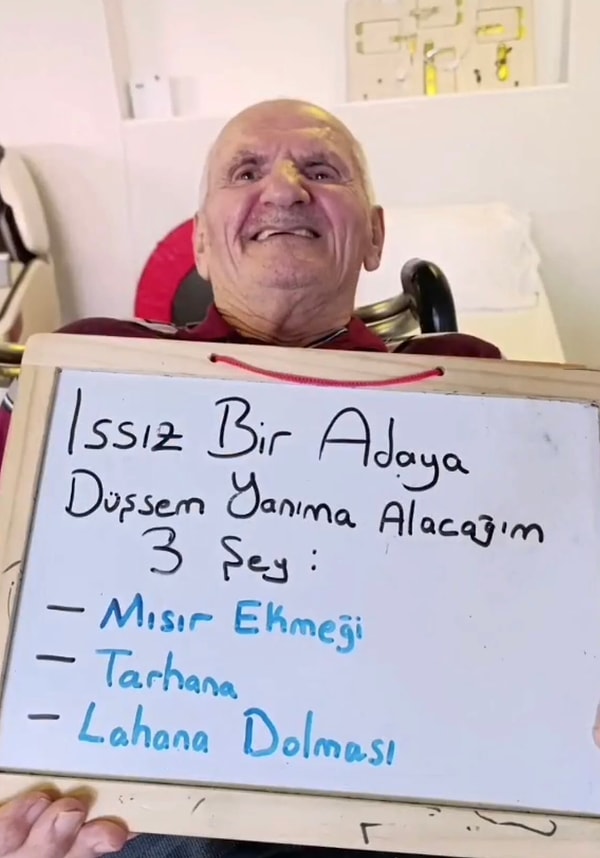 Issız Bir Adaya
Düşsem Yanıma Alacağım
3 Şey :
- Mısır Ekmeği
- Tarhana
- Lahana Dolması